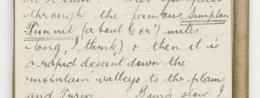 through the famous Simplon
Tunnel (about 6 or 7 miles
long, I think) & then it is
a rapid descent down the
mountain valleys to the plain
and Turin. Being slow I